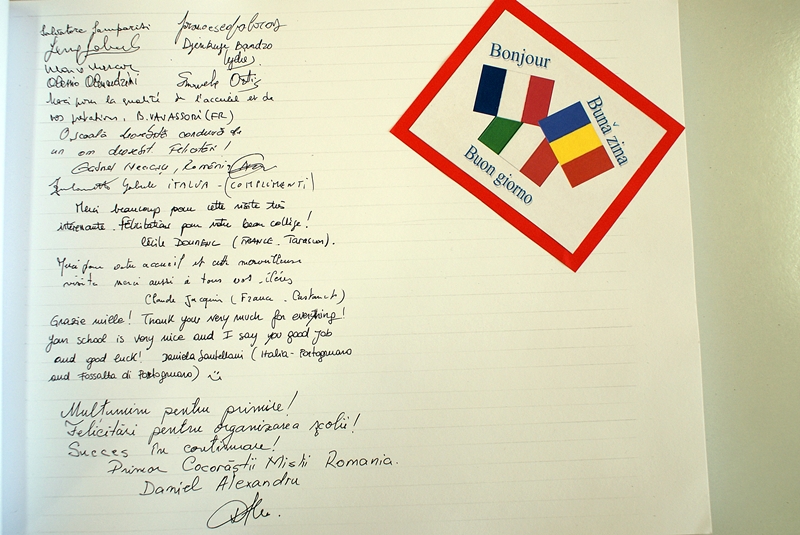 Salvatore
Djenkuje Bandzo
Merci pour la qualité de l'accueil et de
vos prestations. B. VAVASSORI (FR)
O școală deosebită condusă de
un om deosebit. Felicitări!
Gabriel Neacșu, România
ITALIA - (COMPLIMENTI)
Merci beaucoup pour cette visite très
intéressante. Félicitations pour votre beau collège!
Cécile DOUMENC (FRANCE - Tarascon).
Merci pour votre accueil et cette merveilleuse
visite merci aussi à tous vos élèves
Claude Jacquin (France -
Grazie mille! Thank your very much for everything!
Your school is very nice and I say you good job
and good luck! Daniela (Italia - Portogruaro
and Fossalta di Portogruaro)
Multumim pentru primire!
Felicitări pentru organizarea școlii!
Succes în continuare!
Primar Cocorăștii Mislii Romania.
Daniel Alexandru
Bonjour
Bună ziua
Buon giorno